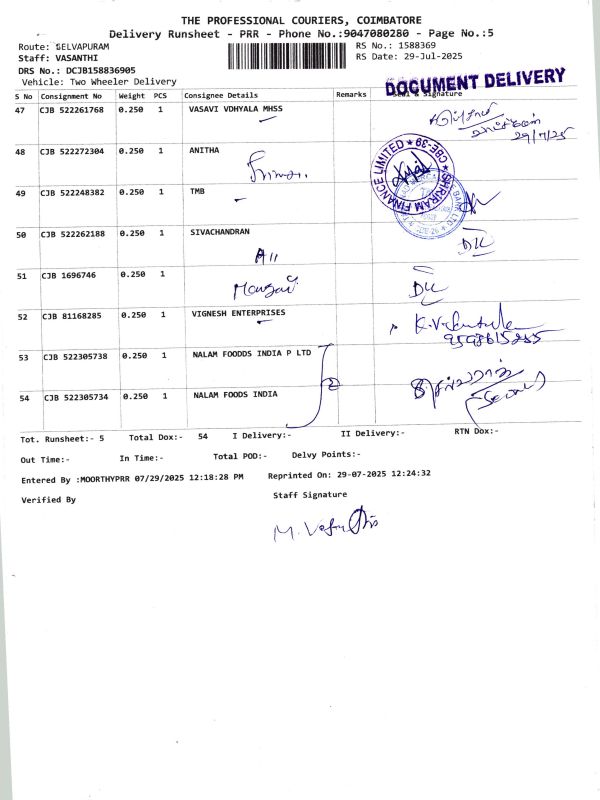 THE PROFESSIONAL COURIERS, COIMBATORE
Delivery Runsheet - PRR - Phone No.:9047080280 - Page No.:5
Route: SELVAPURAM
RS No.: 1588369
Staff: VASANTHI
RS Date: 29-Jul-2025
DRS No.: DCJB158836905
Vehicle: Two Wheeler Delivery
DOCUMENT DELIVERY
S No Consignment No Weight PCS Consignee Details Remarks Seal & Signature
47 CJB 522261768 0.250 1 VASAVI VDHYALA MHSS
29/7/25
48 CJB 522272304 0.250 1 ANITHA
SHRIRAM FINANCE LIMITED * CBE-39 *
49 CJB 522248382 0.250 1 TMB
50 CJB 522262188 0.250 1 SIVACHANDRAN
51 CJB 1696746 0.250 1
52 CJB 81168285 0.250 1 VIGNESH ENTERPRISES
53 CJB 522305738 0.250 1 NALAM FOODDS INDIA P LTD
54 CJB 522305734 0.250 1 NALAM FOODS INDIA
Tot. Runsheet:- 5 Total Dox:- 54 I Delivery:- II Delivery:- RTN Dox:-
Out Time:- In Time:- Total POD:- Delvy Points:-
Entered By :MOORTHYPRR 07/29/2025 12:18:28 PM Reprinted On: 29-07-2025 12:24:32
Verified By Staff Signature